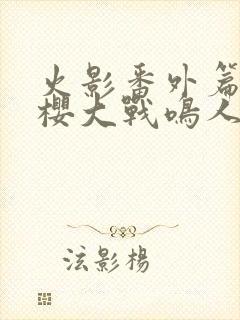 火影番外篇
樱大戰鳴人
泫影楊